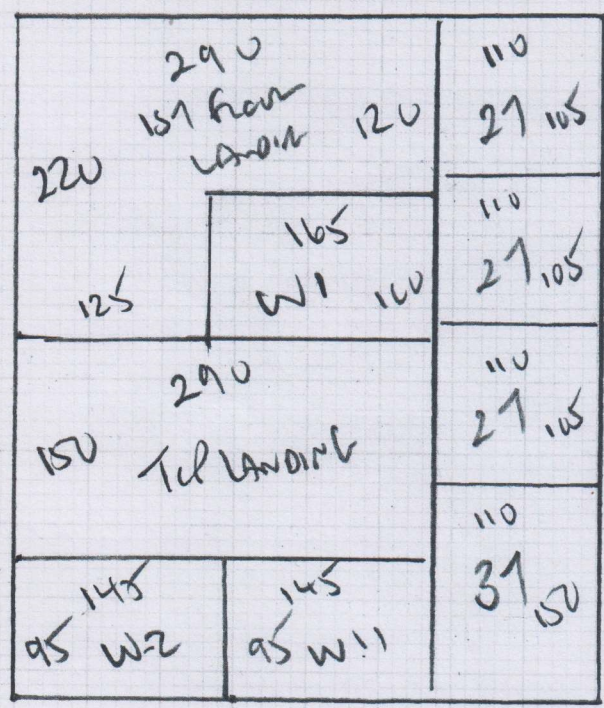 290
1ST FLOOR
LANDING
120
220
165
W1 100
125
290
150 TOP LANDING
145
95 W2
145
95 W11
110
2T 105
110
2T 105
110
2T 105
110
3T 150